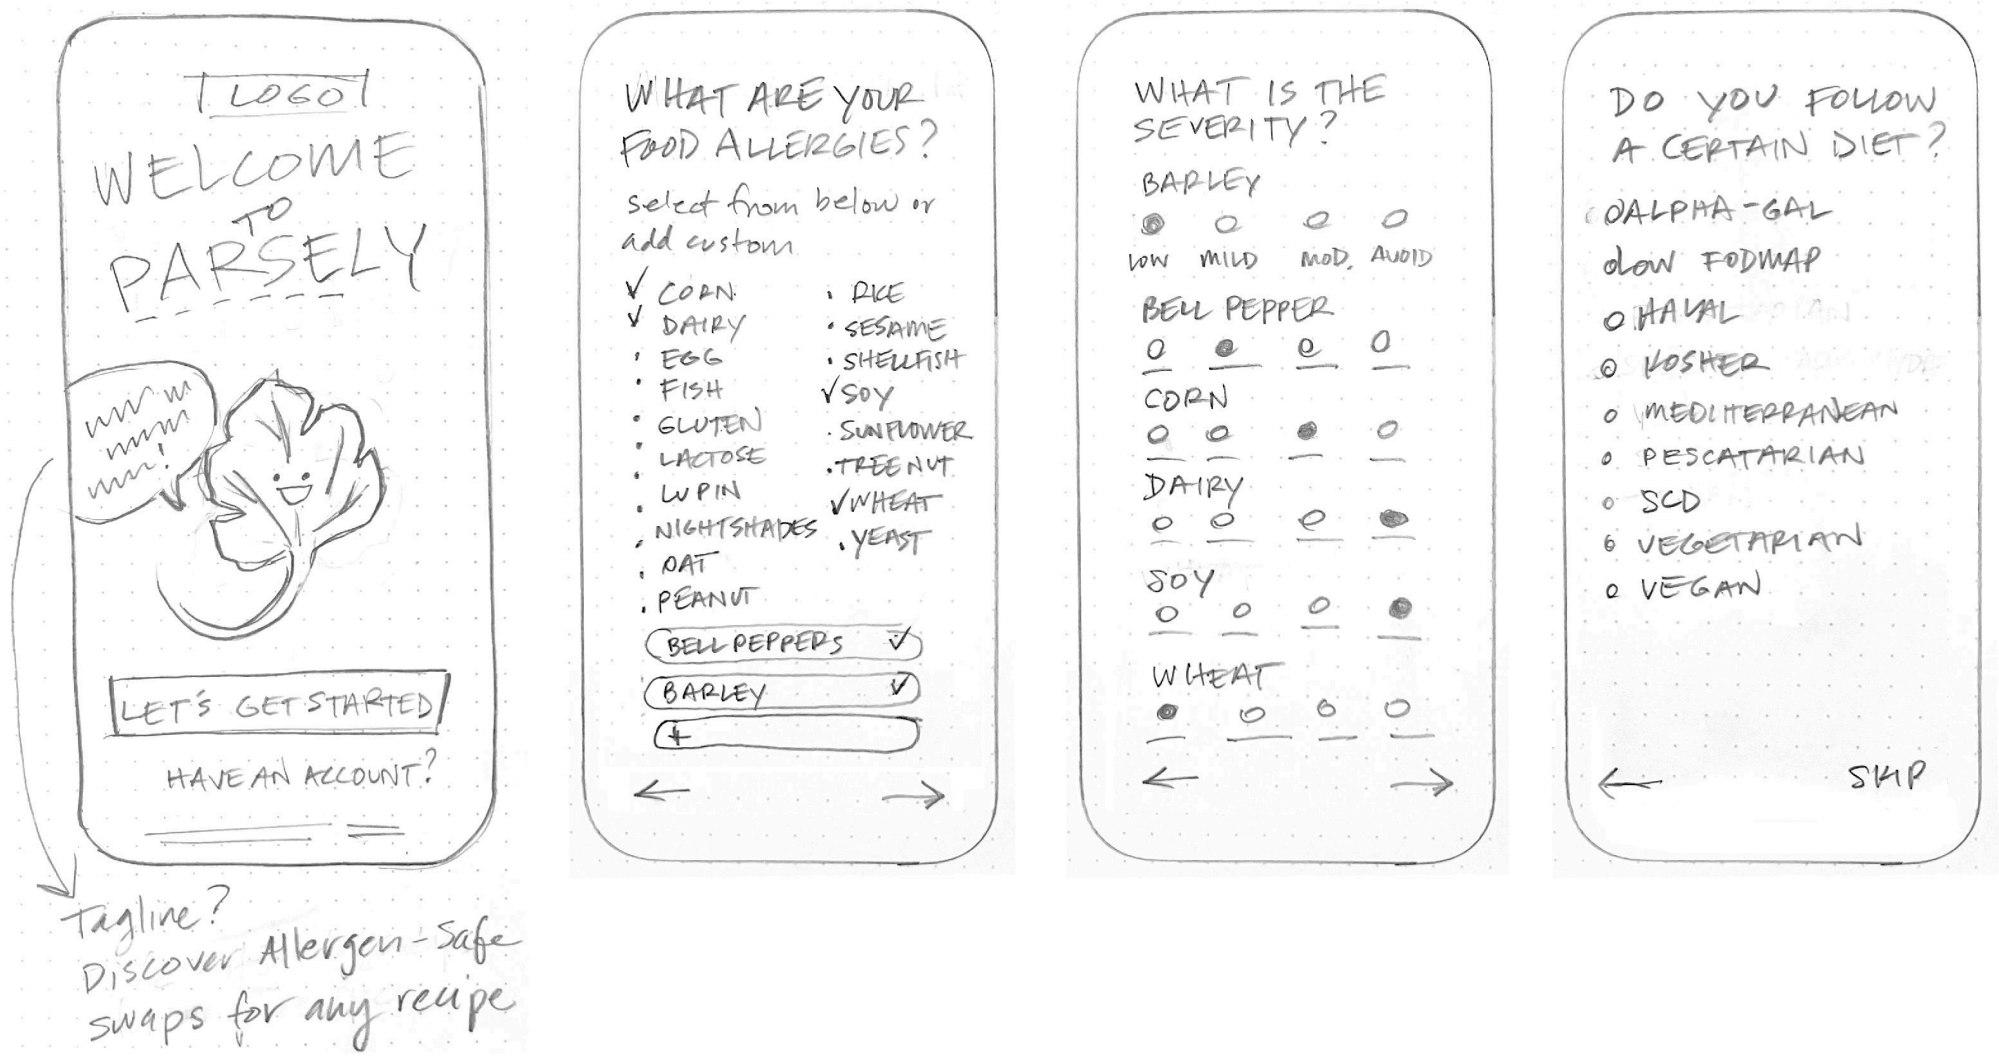 LOGO
WELCOME
TO
PARSELY
LET'S GET STARTED
HAVE AN ACCOUNT?
Tagline?
Discover Allergen-Safe
swaps for any recipe
WHAT ARE YOUR
FOOD ALLERGIES?
select from below or
add custom
CORN
DAIRY
EGG
FISH
GLUTEN
LACTOSE
LUPIN
NIGHTSHADES
OAT
PEANUT
RICE
SESAME
SHELLFISH
SOY
SUNFLOWER
TREE NUT
WHEAT
YEAST
BELL PEPPERS
BARLEY
+
WHAT IS THE
SEVERITY?
BARLEY
LOW MILD MOD. AVOID
BELL PEPPER
CORN
DAIRY
SOY
WHEAT
DO YOU FOLLOW
A CERTAIN DIET?
ALPHA-GAL
LOW FODMAP
HALAL
KOSHER
MEDITERRANEAN
PESCATARIAN
SCD
VEGETARIAN
VEGAN
SKIP